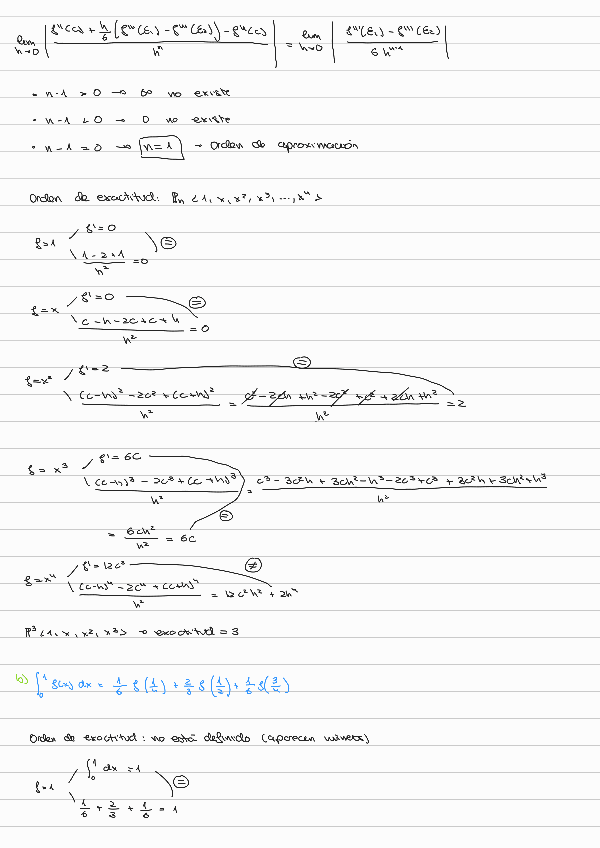 lim h→0 | (f''(c) + h/6 [f'''(ξ₁) - f'''(ξ₂)] - f''(c)) / hⁿ | = lim h→0 | (f'''(ξ₁) - f'''(ξ₂)) / 6hⁿ⁻¹ |
• n-1 > 0 → ∞ no existe
• n-1 < 0 → 0 no existe
• n-1 = 0 → n=1 → Orden de aproximación
Orden de exactitud: ℙn <1, x, x², x³, ..., xⁿ>
f=1
f'=0
(1-2+1)/h² = 0
=
f=x
f'=0
(c-h-2c+c+h)/h² = 0
=
f=x²
f'=2
((c-h)² - 2c² + (c+h)²)/h² = (c² - 2ch + h² - 2c² + c² + 2ch + h²)/h² = 2
=
f = x³
f'=6c
((c-h)³ - 2c³ + (c+h)³)/h² = (c³ - 3c²h + 3ch² - h³ - 2c³ + c³ + 3c²h + 3ch² + h³)/h²
= 6ch²/h² = 6c
=
f=x⁴
f'=12c²
((c-h)⁴ - 2c⁴ + (c+h)⁴)/h² = 12c²h² + 2h⁴
≠
ℙ³<1, x, x², x³> → exactitud = 3
b) ∫₀¹ f(x) dx = 1/6 f(1/4) + 2/3 f(1/2) + 1/6 f(3/4)
Orden de exactitud: no está definido (aparecen números)
f=1
∫₀¹ dx = 1
1/6 + 2/3 + 1/6 = 1
=